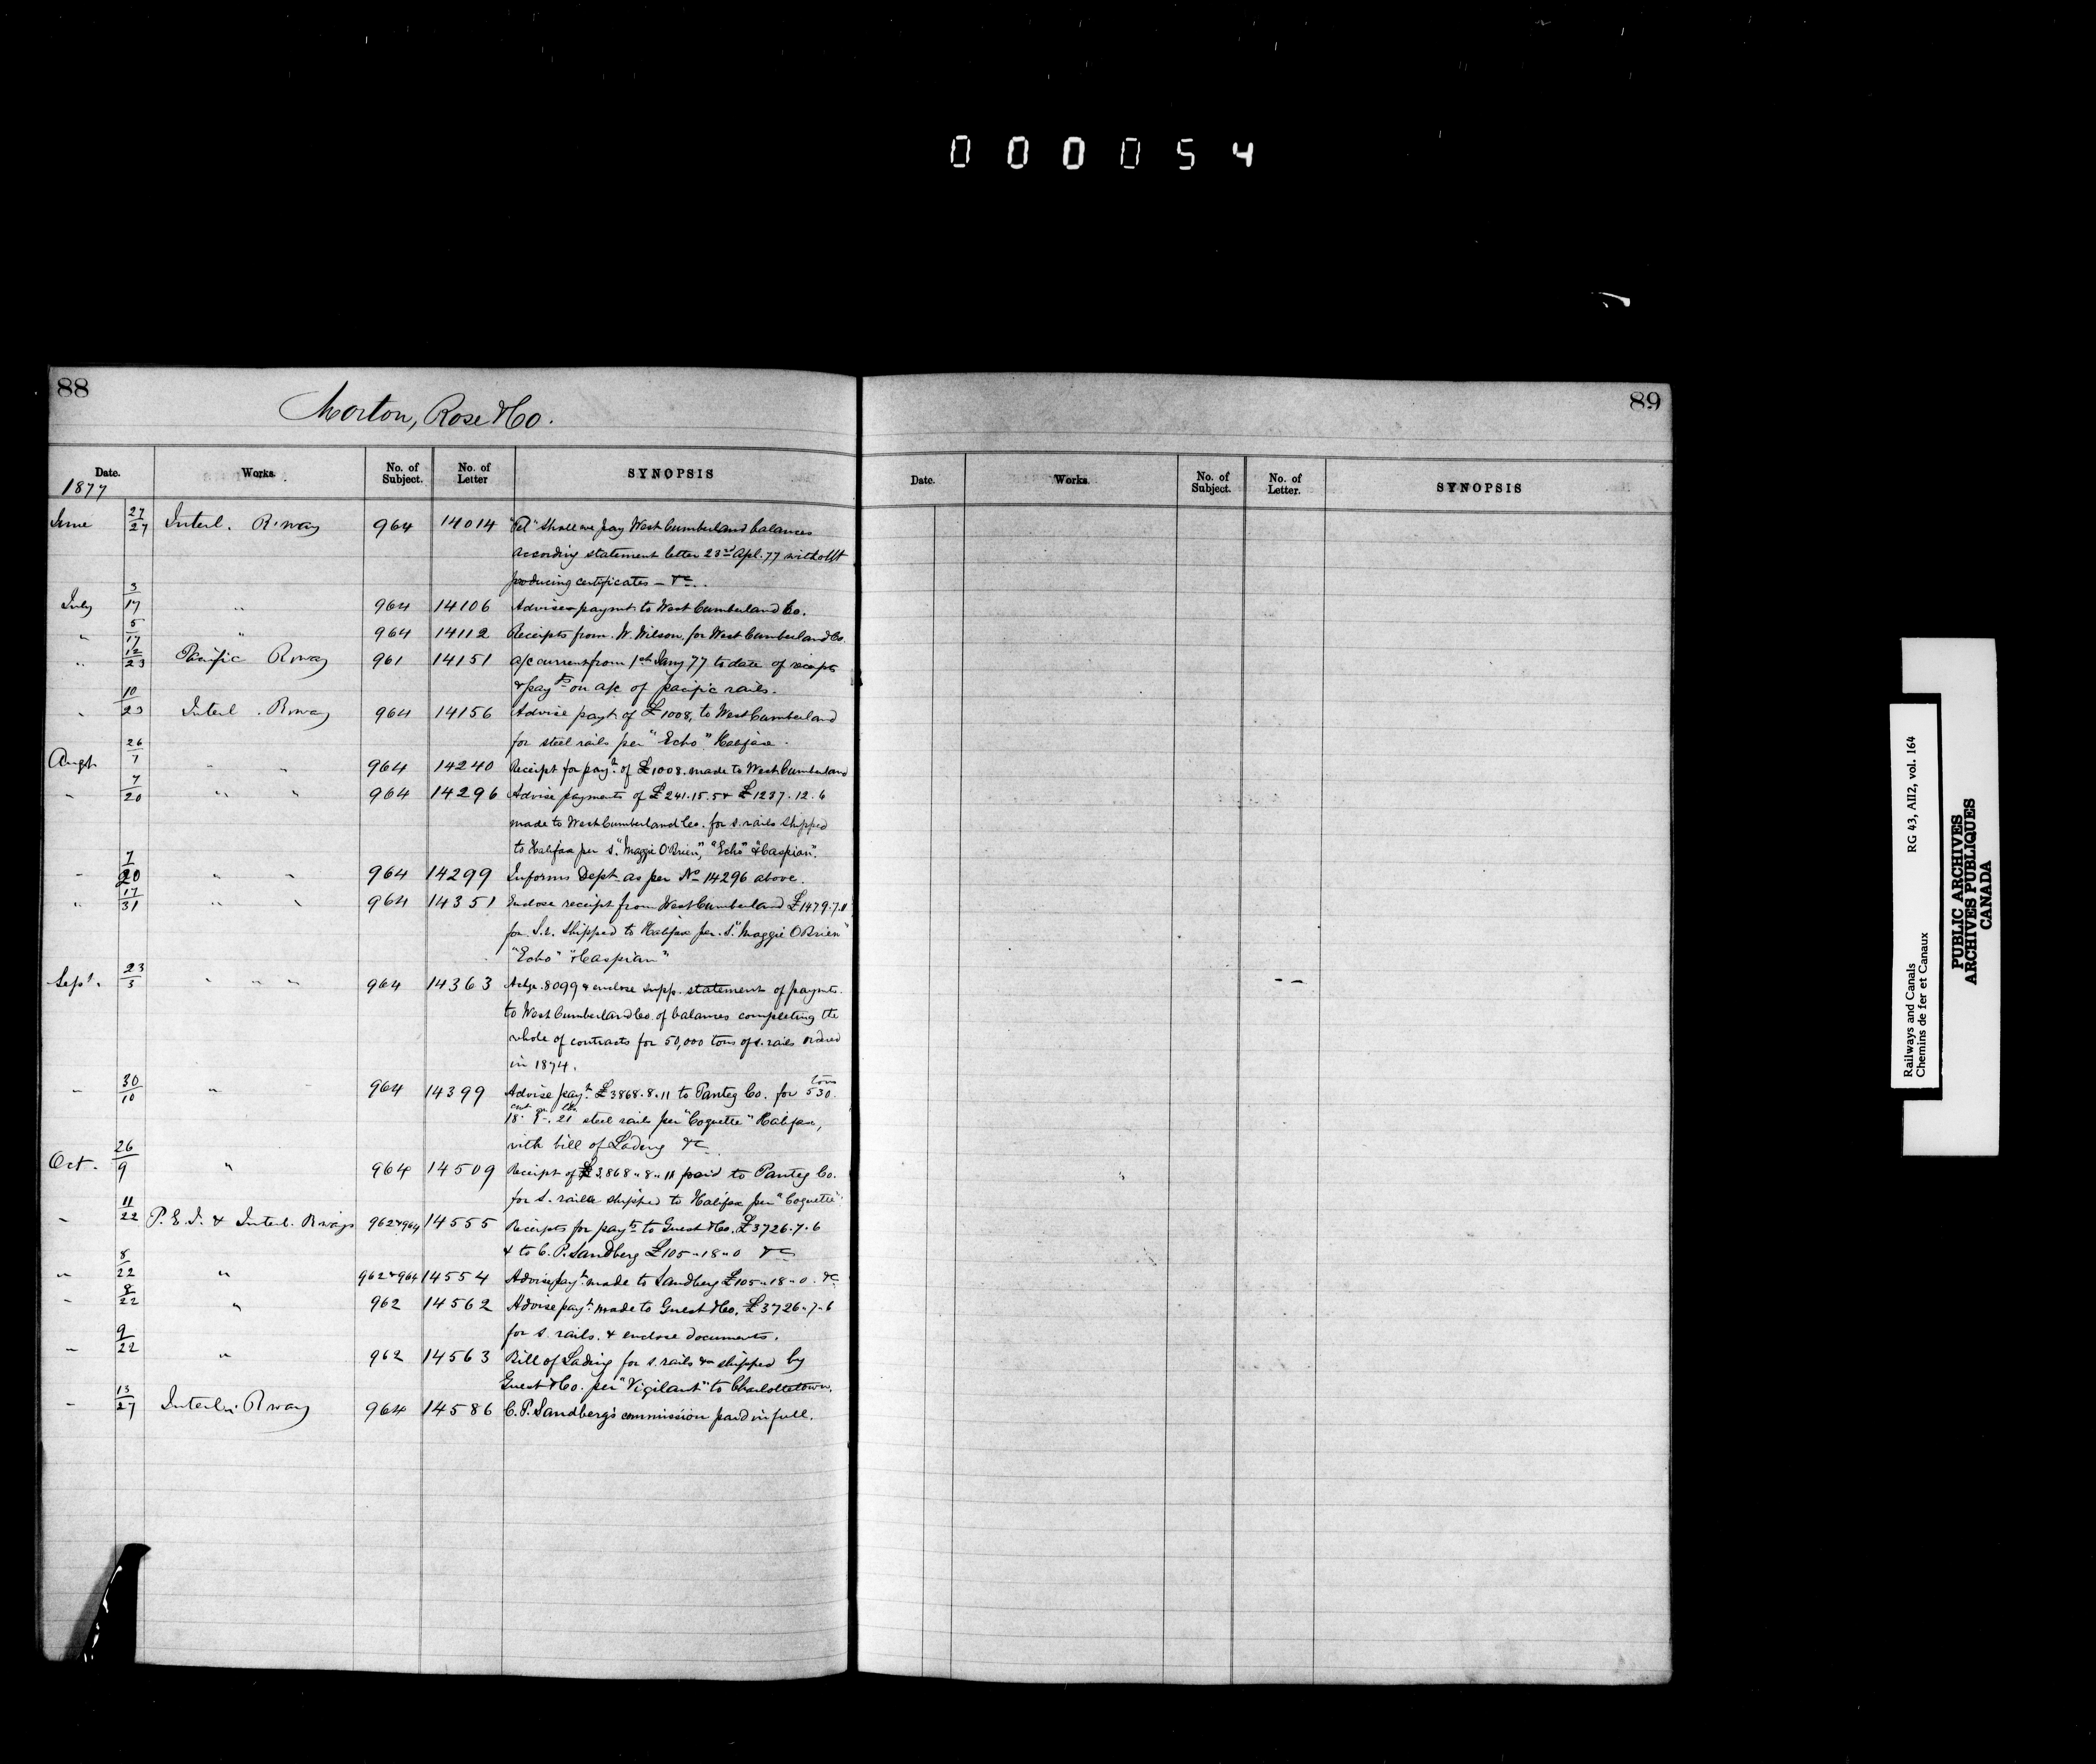 000054
88
Morton, Rose & Co.
Date. Works. No. of Subject. No. of Letter SYNOPSIS
1877
June 27/27 Interl. R.way 964 14014 "Tel" Shall we pay West Cumberland balances
according statement letter 23rd Apl. 77 without
producing certificates - &c.
July 3/17 " 964 14106 Advises paymt to West Cumberland Co.
" 5/17 " 964 14112 Receipts from W. Wilson for West Cumberland Co.
" 12/23 Pacific Rway 961 14151 a/c current from 1st Jany 77 to date of receipts
& payts on a/c of pacific rails.
" 10/23 Interl. Rway 964 14156 Advise payt of £1008, to West Cumberland
for steel rails per "Echo" Halifax.
Augt 26/7 " " 964 14240 Receipt for payt. of £1008. made to West Cumberland
" 7/20 " " 964 14296 Advise payments of £241.15.5 & £1237.12.6
made to West Cumberland Co. for s. rails shipped
to Halifax per S. "Maggie O'Brien", "Echo" & "Caspian".
" 7/20 " " 964 14299 Informs Dept. as per No 14296 above.
" 17/31 " " 964 14351 Enclose receipt from West Cumberland £1479.7.11
for S.r. Shipped to Halifax per. S. "Maggie O Brien"
"Echo" & "Caspian"
Sept. 23/3 " " " 964 14363 Ackge. 8099 & enclose supp. statement of paymts.
to West Cumberland Co. of balances completing the
whole of contracts for 50,000 tons of s. rails ordered
in 1874.
" 30/10 " " 964 14399 Advise payt. £3868.8.11 to Panteg Co. for 530 tons
18 cwt. qr. 21 lbs steel rails per "Coquette" Halifax,
with bill of Lading &c.
Oct. 26/9 " 964 14509 Receipt of £3868"8"11 paid to Panteg Co.
for s. rails shipped to Halifax per "Coquette"
" 11/22 P.E.I. & Interl. Rways 962 & 964 14555 Receipts for payts to Guest & Co. £3726.7.6
& to C. P. Sandberg £105"18"0 &c
" 8/22 " 962 & 964 14554 Advise payt. made to Sandberg £105"18"0. &c
" 8/22 " 962 14562 Advise payt. made to Guest & Co. £3726"7"6
for s. rails. & enclose documents.
" 9/22 " 962 14563 Bill of Lading for s. rails &c shipped by
Guest & Co. per "Vigilant" to Charlottetown.
" 13/27 Interl. Rway 964 14586 C. P. Sandberg's commission paid in full.
89
Date. Works. No. of Subject. No. of Letter. SYNOPSIS
Railways and Canals RG 43, AII2, vol. 164
Chemins de fer et Canaux
PUBLIC ARCHIVES
ARCHIVES PUBLIQUES
CANADA